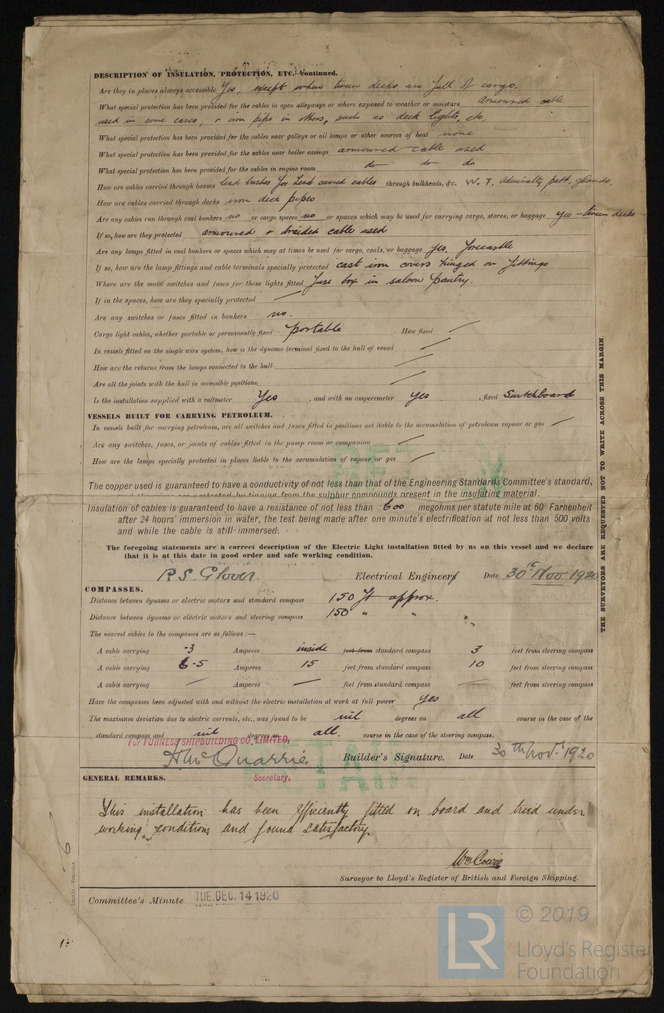 DESCRIPTION OF INSULATION, PROTECTION, ETC.—continued.
Are they in places always accessible Yes, except when tween decks are full of cargo.
What special protection has been provided for the cables in open alleyways or where exposed to weather or moisture armoured cable
used in some cases, + iron pipe in others, such as deck lights, etc.
What special protection has been provided for the cables near galleys or oil lamps or other sources of heat none
What special protection has been provided for the cables near boiler casings armoured cable used
What special protection has been provided for the cables in engine room do do do
How are cables carried through beams lead bushes for lead covered cables through bulkheads, &c. W.T. Admiralty patt. glands.
How are cables carried through decks iron deck pipes
Are any cables run through coal bunkers no or cargo spaces no or spaces which may be used for carrying cargo, stores, or baggage yes – tween decks
If so, how are they protected armoured + braided cable used
Are any lamps fitted in coal bunkers or spaces which may at times be used for cargo, coals, or baggage Yes, Forecastle
If so, how are the lamp fittings and cable terminals specially protected cast iron covers hinged on fittings
Where are the main switches and fuses for these lights fitted fuse box in saloon pantry.
If in the spaces, how are they specially protected
Are any switches or fuses fitted in bunkers no.
Cargo light cables, whether portable or permanently fixed portable How fixed
In vessels fitted on the single wire system, how is the dynamo terminal fixed to the hull of vessel
How are the returns from the lamps connected to the hull
Are all the joints with the hull in accessible positions
Is the installation supplied with a voltmeter Yes , and with an amperemeter Yes , fixed Switchboard
VESSELS BUILT FOR CARRYING PETROLEUM.
In vessels built for carrying petroleum, are all switches and fuses fitted in positions not liable to the accumulation of petroleum vapour or gas
Are any switches, fuses, or joints of cables fitted in the pump room or companion
How are the lamps specially protected in places liable to the accumulation of vapour or gas
The copper used is guaranteed to have a conductivity of not less than that of the Engineering Standards Committee's standard,
protected by tinning from the sulphur compounds present in the insulating material.
Insulation of cables is guaranteed to have a resistance of not less than 600 megohms per statute mile at 60° Farhenheit
after 24 hours' immersion in water, the test being made after one minute's electrification at not less than 500 volts
and while the cable is still immersed.
The foregoing statements are a correct description of the Electric Light installation fitted by us on this vessel and we declare
that it is at this date in good order and safe working condition.
R.S. Glover Electrical Engineer Date 30th Nov 1920
COMPASSES.
Distance between dynamo or electric motors and standard compass 150 ft approx.
Distance between dynamo or electric motors and steering compass 150 " "
The nearest cables to the compasses are as follows:—
A cable carrying ·3 Amperes inside feet from standard compass 3 feet from steering compass
A cable carrying 6·5 Amperes 15 feet from standard compass 10 feet from steering compass
A cable carrying — Amperes — feet from standard compass — feet from steering compass
Have the compasses been adjusted with and without the electric installation at work at full power yes
The maximum deviation due to electric currents, etc., was found to be nil degrees on all course in the case of the
standard compass and nil degrees on all. course in the case of the steering compass.
For FURNESS SHIPBUILDING CO. LIMITED,
H McQuarrie Builder's Signature. Date 30th Nov. 1920
Secretary.
GENERAL REMARKS.
This installation has been efficiently fitted on board and tried under
working conditions and found satisfactory.
Wm Cowie
Surveyor to Lloyd's Register of British and Foreign Shipping.
Committee's Minute TUE. DEC. 14 1920
THE SURVEYORS ARE REQUESTED NOT TO WRITE ACROSS THIS MARGIN.
LR © 2019
Lloyd's Register
Foundation